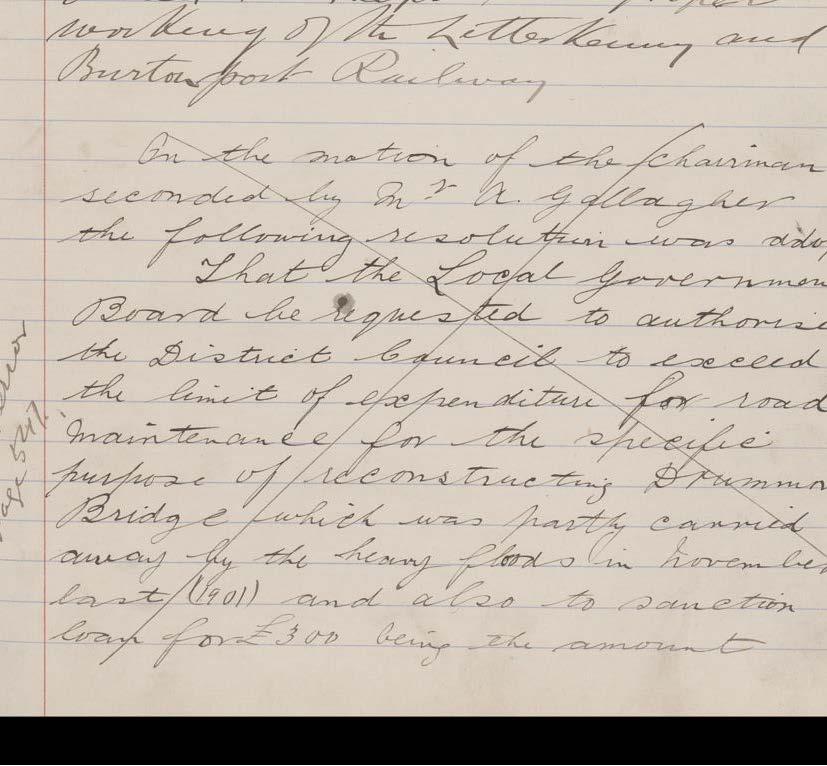 working of the Letterkenny and
Burtonport Railway
On the motion of the Chairman
seconded by Mr A. Gallagher
the following resolution was adop
That the Local Governmen
Board be requested to authorise
the District Council to exceed
the limit of expenditure for road
maintenance for the specific
purpose of reconstructing Drummon
Bridge which was partly carried
away by the heavy floods in November
last (1901) and also to sanction
loan for £300 being the amount